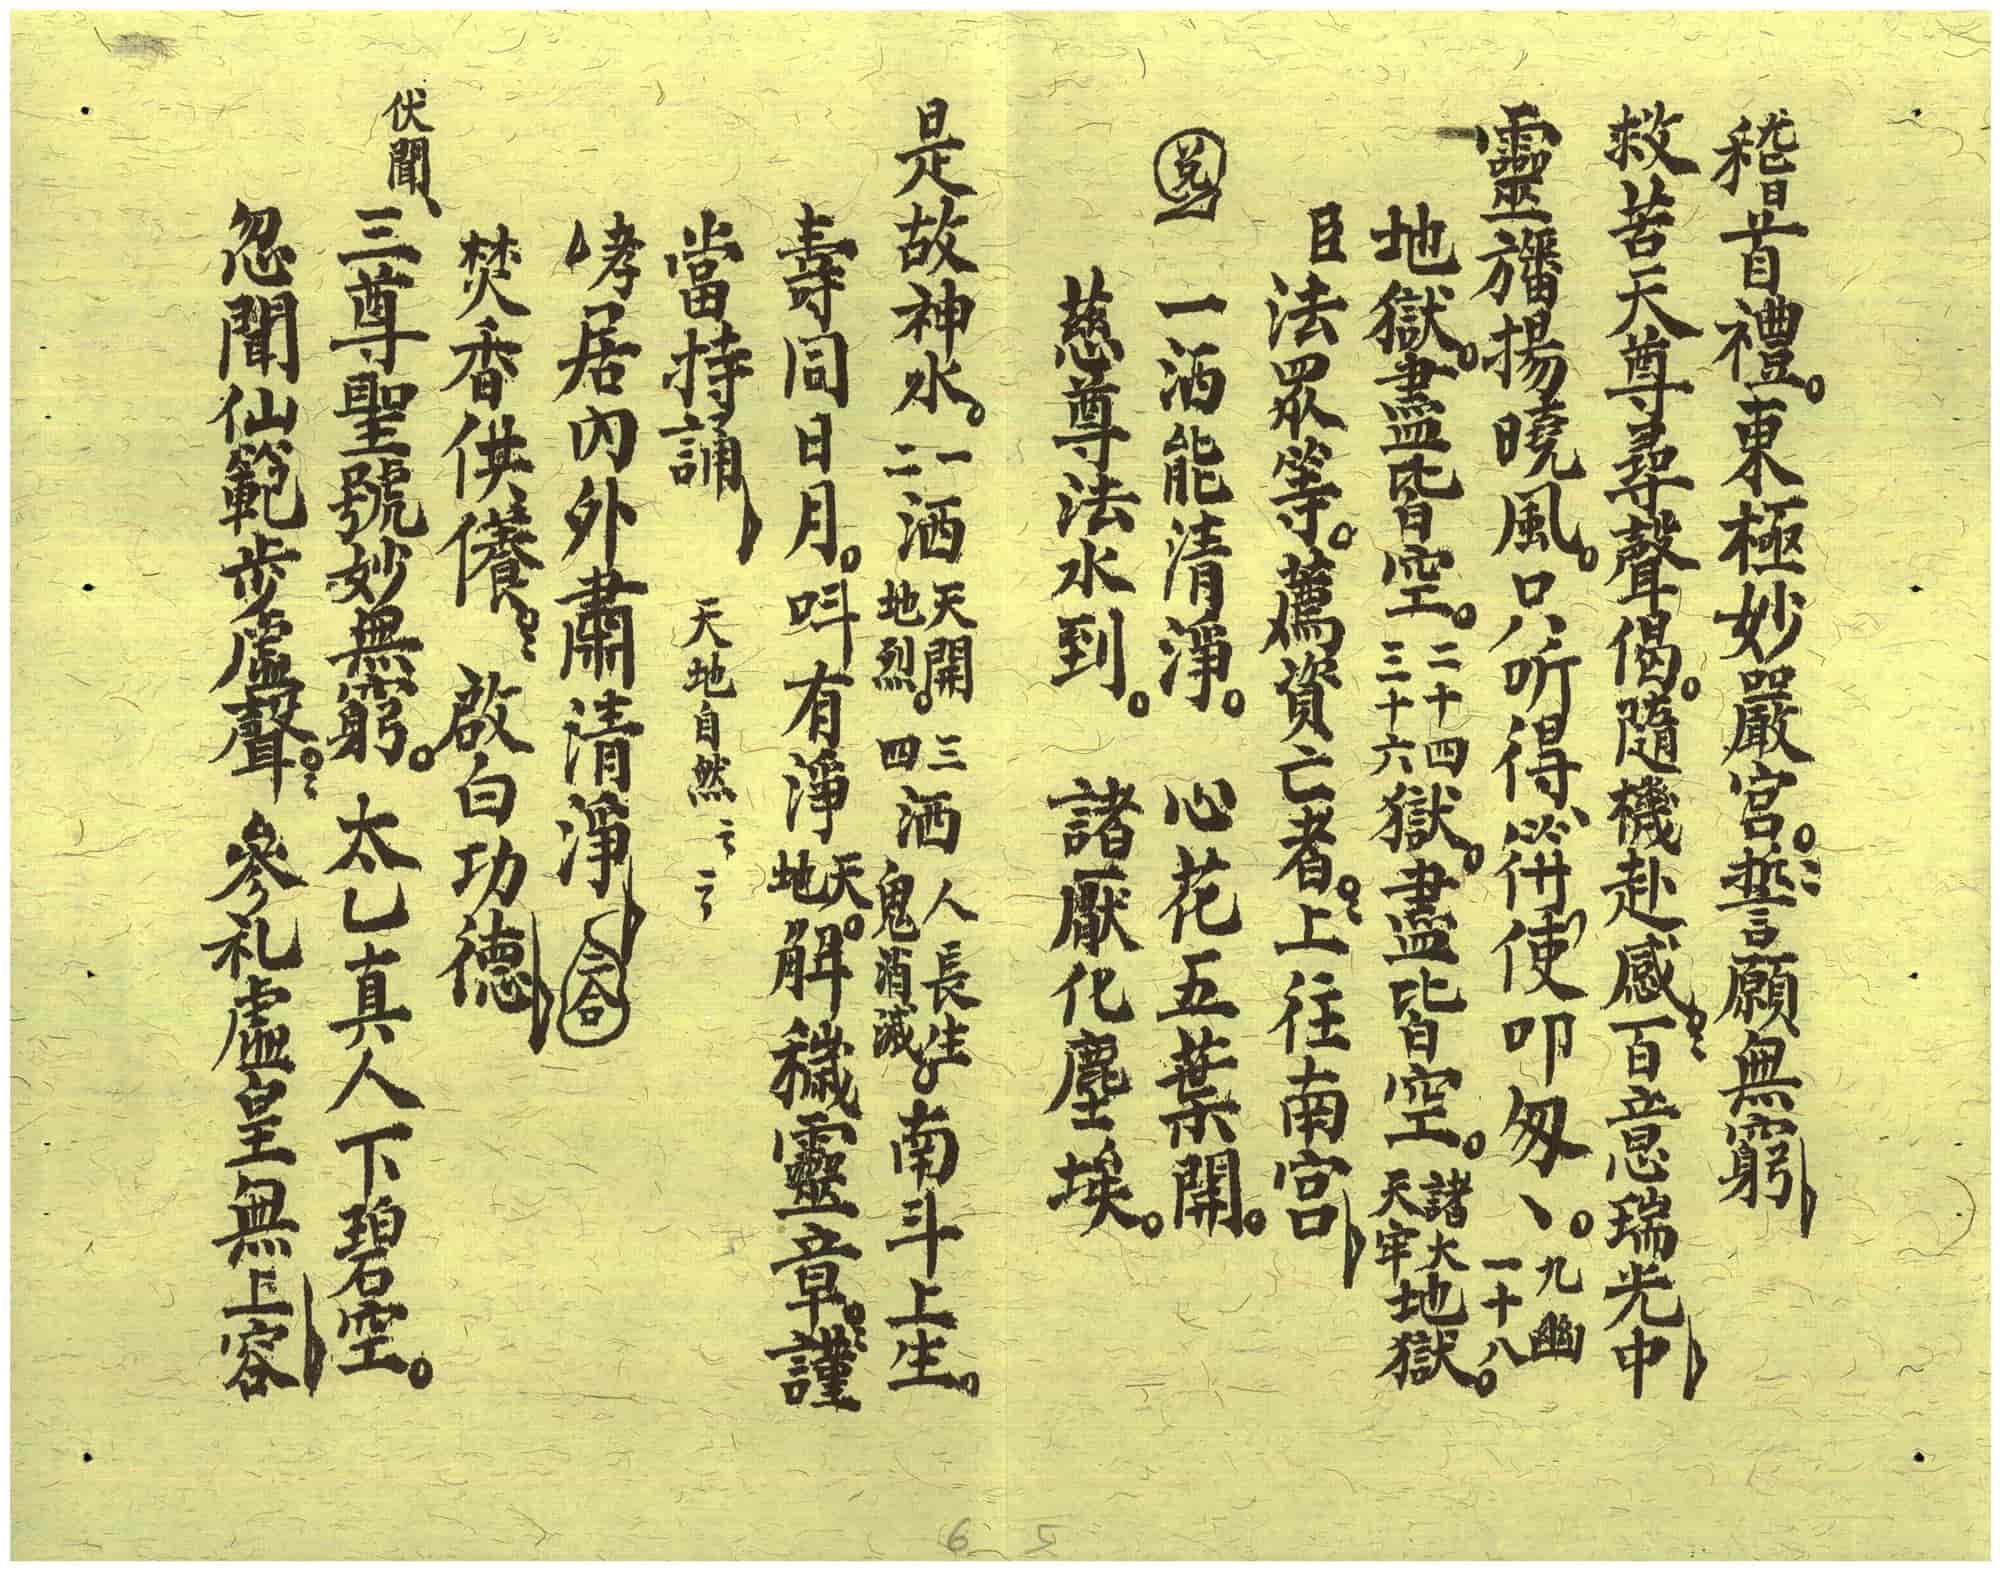 稽首禮。東極妙嚴宮。誓願無窮
救苦天尊尋聲偈。隨機赴感。百億瑞光中
靈旛揚曉風。只听得符使叩匆、。九幽一十八。
地獄。盡皆空。二十四三十六獄。盡皆空。諸大天牢地獄。
臣法眾等。薦資亡者。上往南宮
兌 一洒能清淨。 心花五葉開。
慈尊法水到。 諸厭化塵埃。
是故神水。一二洒天開地烈。三四洒人長生鬼消滅。南斗上生。
壽同日月。呌有淨天地。解穢靈章。謹
當持誦 天地自然
孝居內外肅清淨 合
焚香供養。 啟白功德
伏聞 三尊聖號妙無窮。 太乙真人下碧空。
忽聞仙範步虛聲。 參礼虛皇無上容
6 5